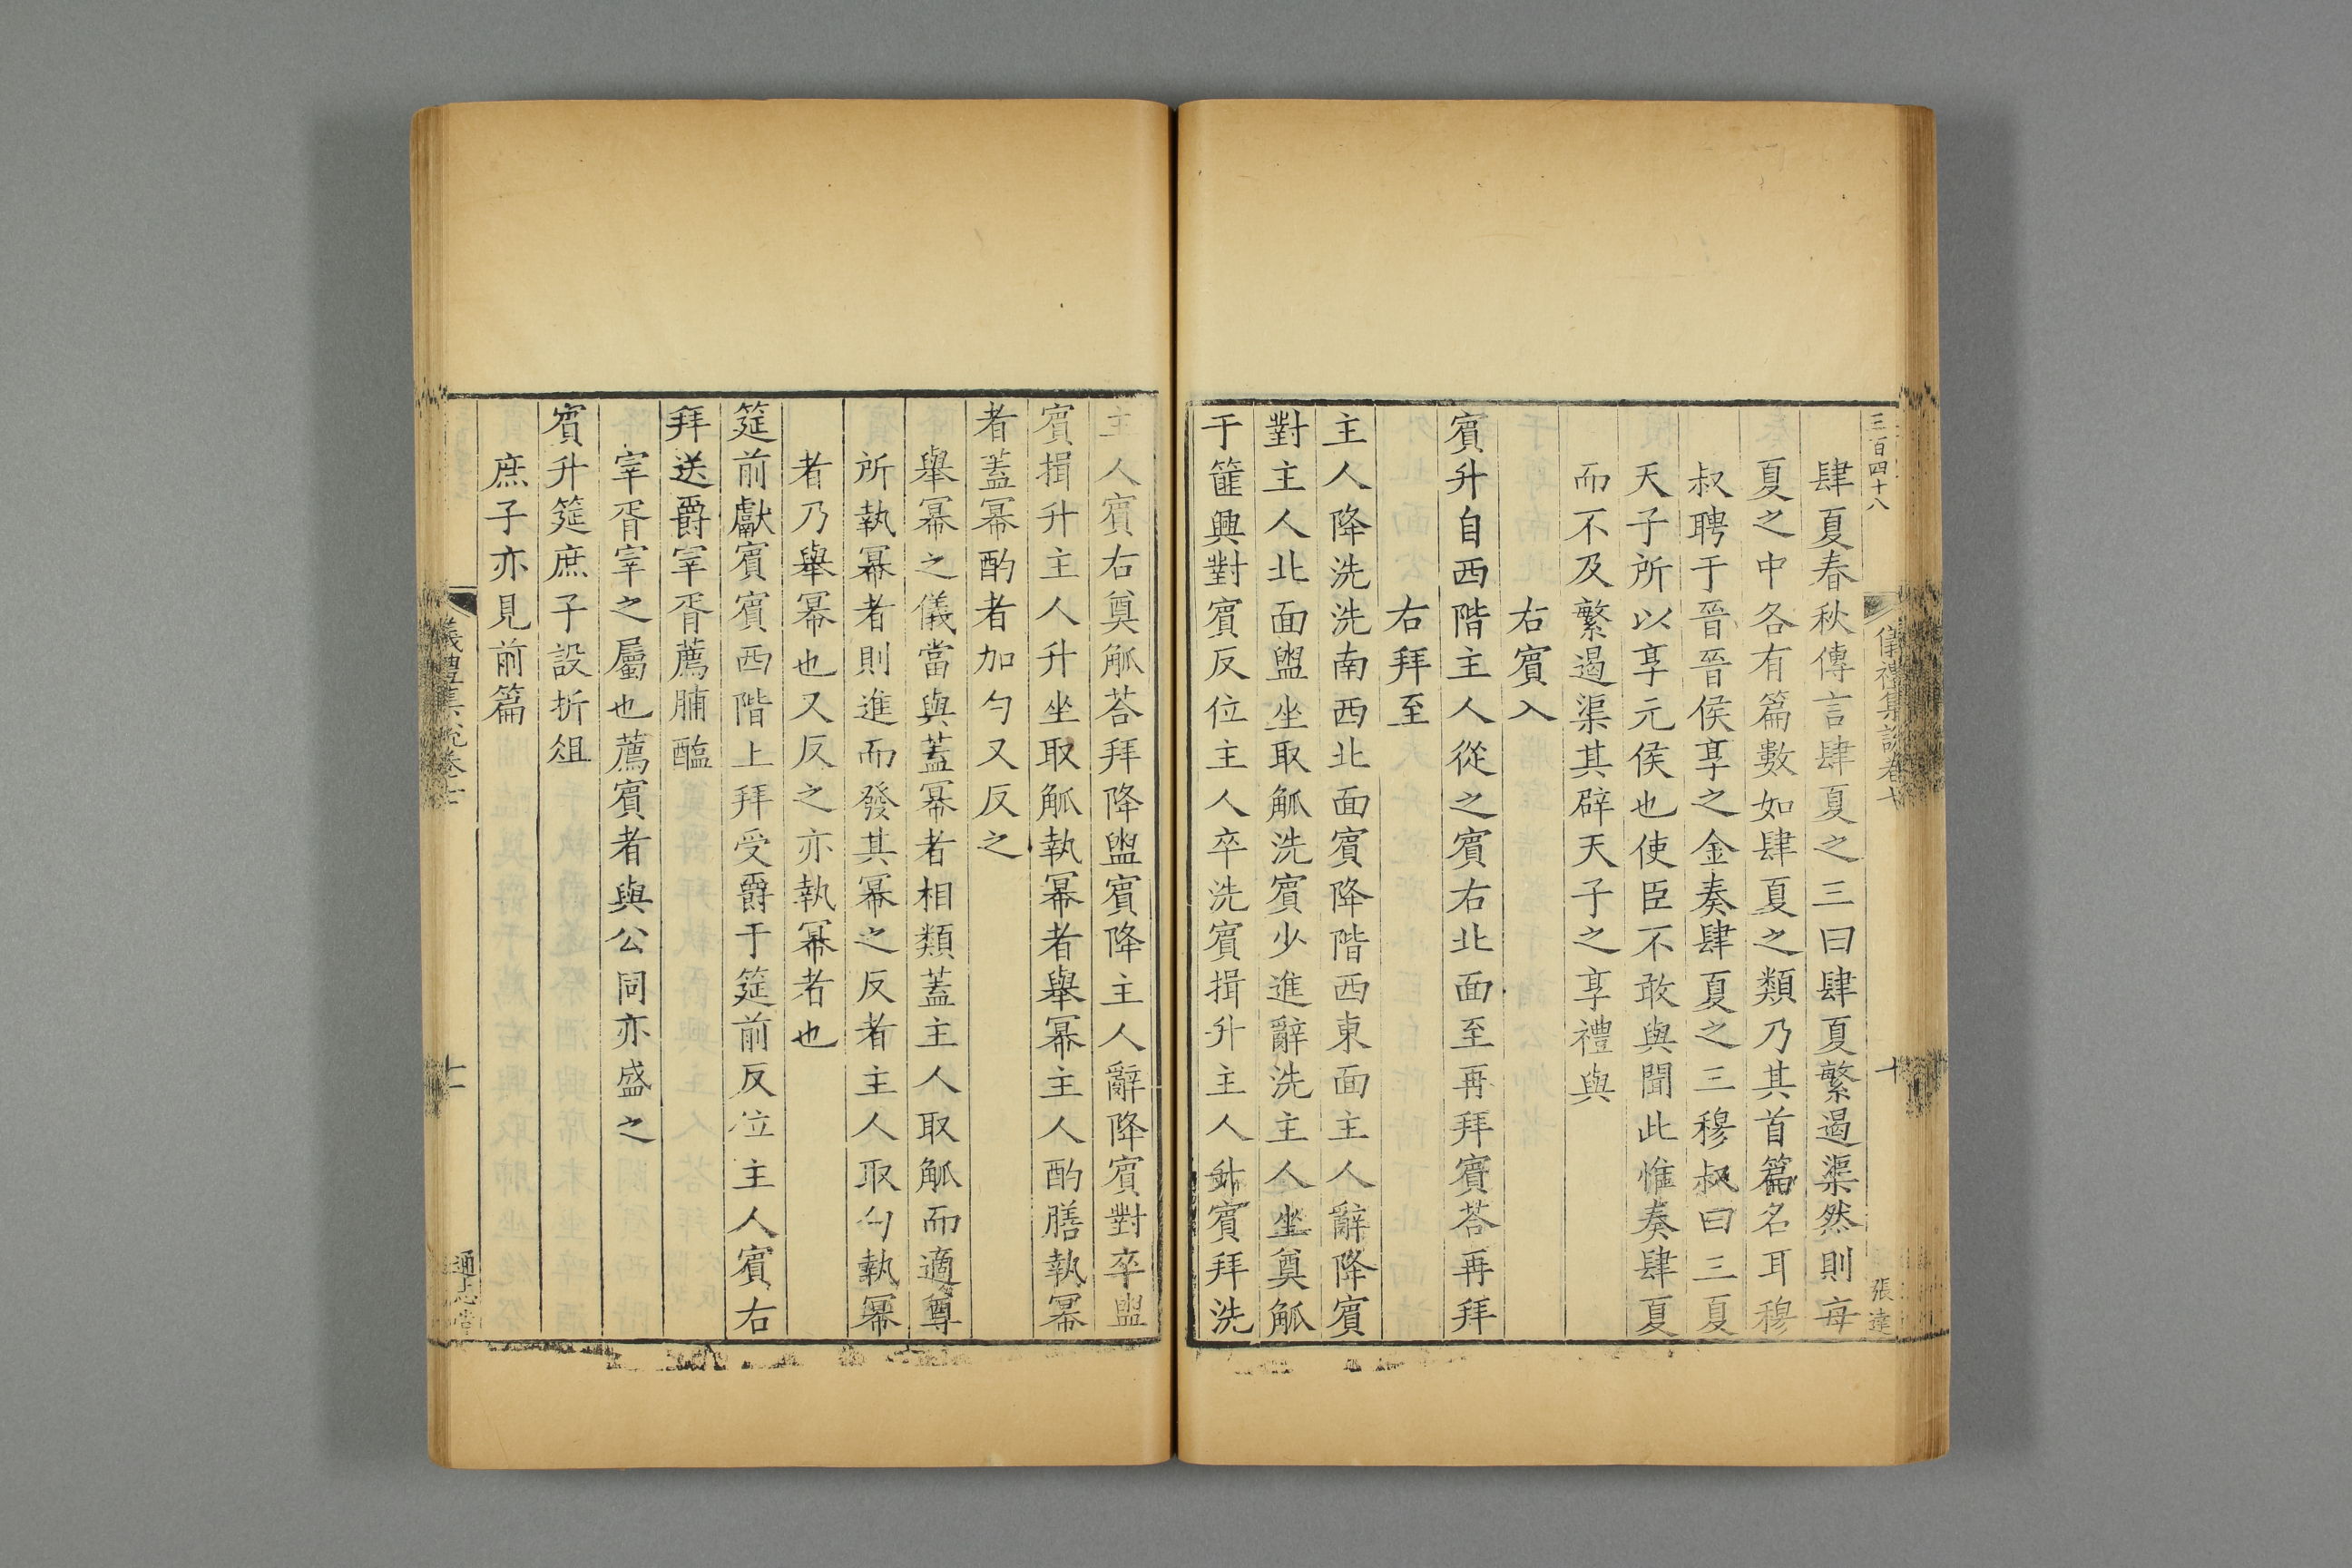 三百四十八
儀禮集說卷七
十
張達
肆夏春秋傳言肆夏之三曰肆夏繁遏渠然則每
夏之中各有篇數如肆夏之類乃其首篇名耳穆
叔聘于晉晉侯享之金奏肆夏之三穆叔曰三夏
天子所以享元侯也使臣不敢與聞此惟奏肆夏
而不及繁遏渠其辟天子之享禮與
右賓入
賓升自西階主人從之賓右北面至再拜賓荅再拜
右拜至
主人降洗洗南西北面賓降階西東面主人辭降賓
對主人北面盥坐取觚洗賓少進辭洗主人坐奠觚
于篚興對賓反位主人卒洗賓揖升主人升賓拜洗
主人賓右奠觚荅拜降盥賓降主人辭降賓對卒盥
賓揖升主人升坐取觚執冪者舉冪主人酌膳執冪
者蓋冪酌者加勺又反之
舉冪之儀當與蓋冪者相類蓋主人取觚而適尊
所執冪者則進而發其冪之反者主人取勺執冪
者乃舉冪也又反之亦執冪者也
筵前獻賓賓西階上拜受爵于筵前反位主人賓右
拜送爵宰胥薦脯醢
宰胥宰之屬也薦賓者與公同亦盛之
賓升筵庶子設折俎
庶子亦見前篇
儀禮集說卷七
十一
通志堂